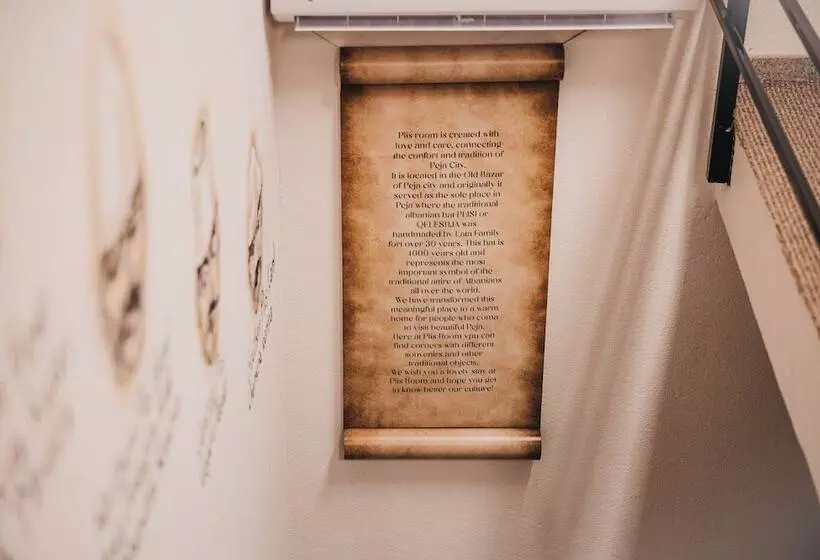 Plis room is created with
love and care, connecting
the comfort and tradition of
Peja City.
It is located in the Old Bazar
of Peja city and originally it
served as the sole place in
Peja where the traditional
albanian hat PLISI or
QELESHJA was
handmaded by Lata Family
fort over 30 years. This hat is
1000 years old and
represents the most
important symbol of the
traditional attire of Albanians
all over the world.
We have transformed this
meaningful place to a warm
home for people who coma
to visit beautiful Peja.
Here at Plis Room you can
find corners with different
souvenirs and other
traditional objects.
We wish you a lovely stay at
Plis Room and hope you get
to know better our culture!